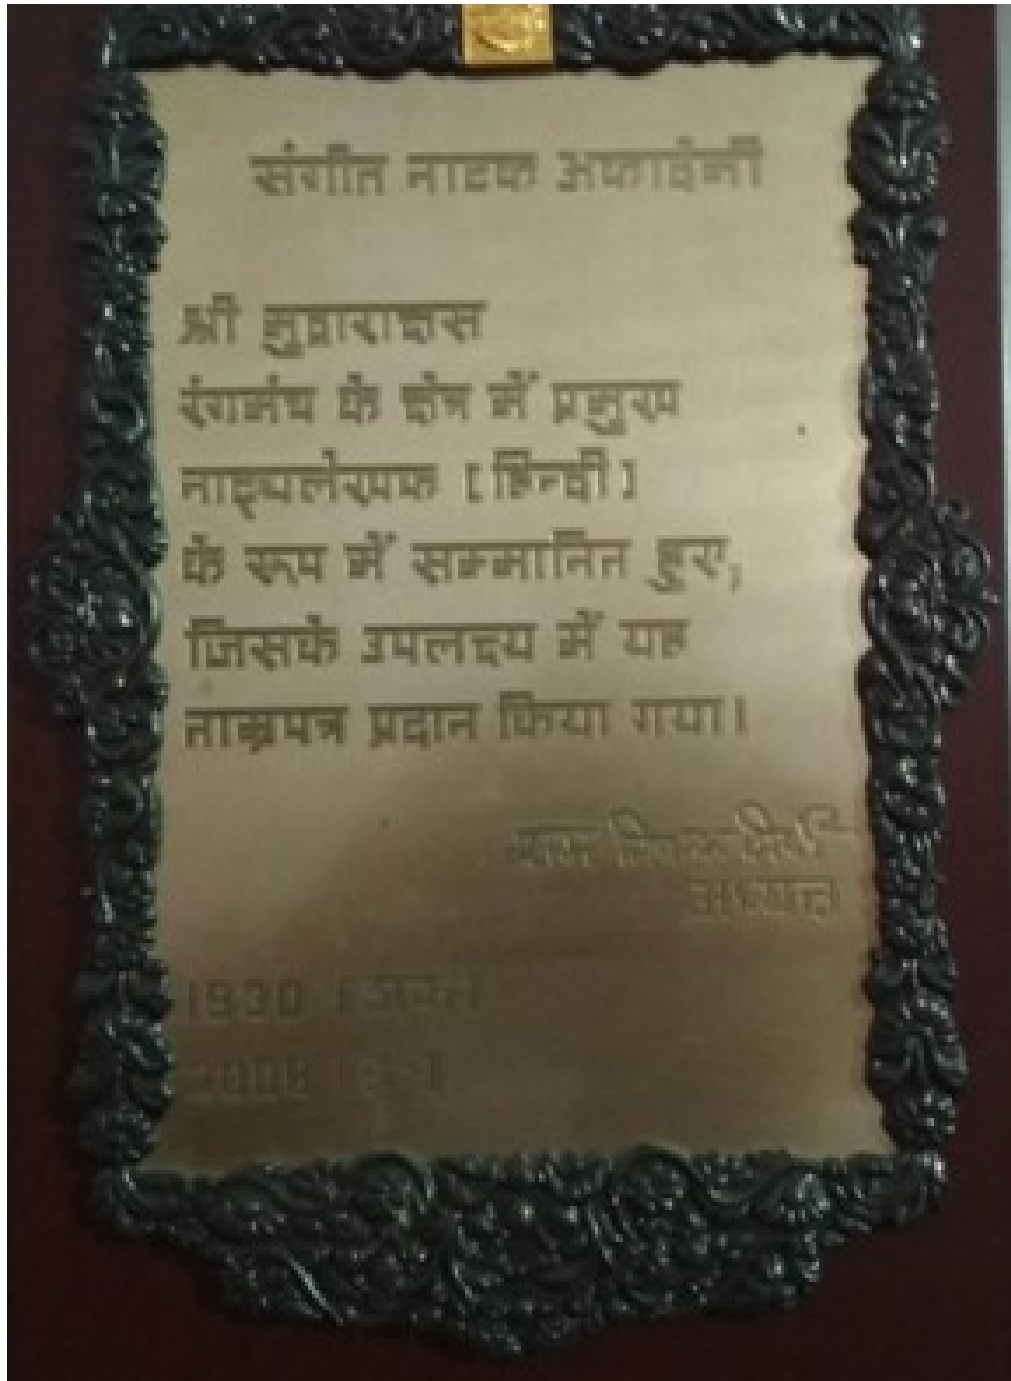 संगीत नाटक अकादेमी
श्री मुद्राराक्षस
रंगमंच के क्षेत्र में प्रमुख
नाट्यलेखक [हिन्दी]
के रूप में सम्मानित हुए,
जिसके उपलक्ष्य में यह
ताम्रपत्र प्रदान किया गया।
अध्यक्ष
1930 [शक]
2008